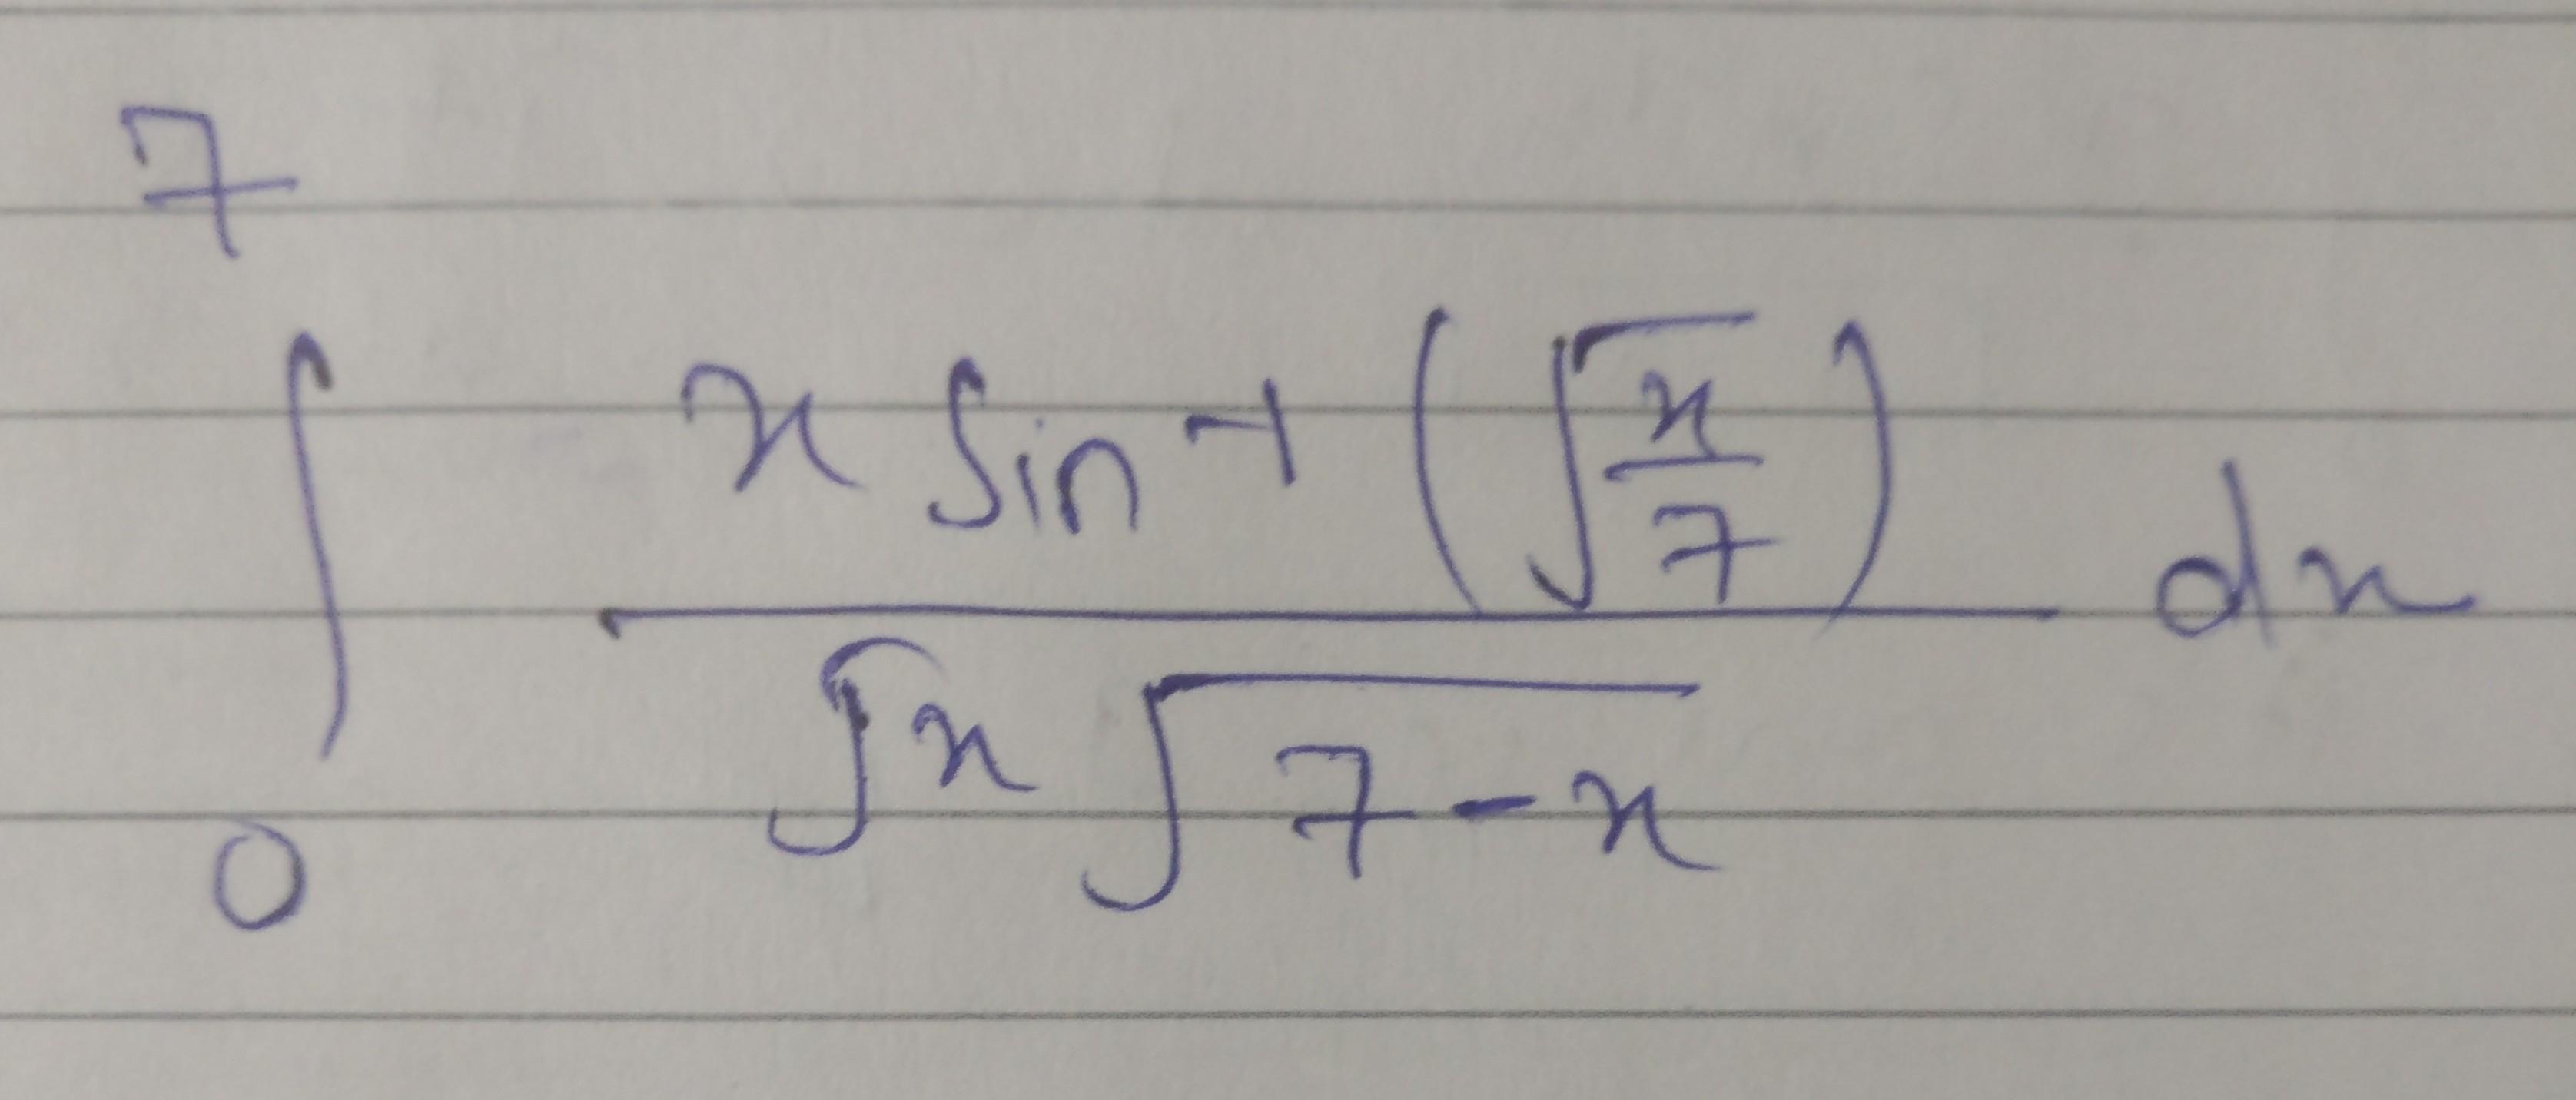 ∫₀⁷ (x sin⁻¹(√(x/7))) / (√x √(7-x)) dx